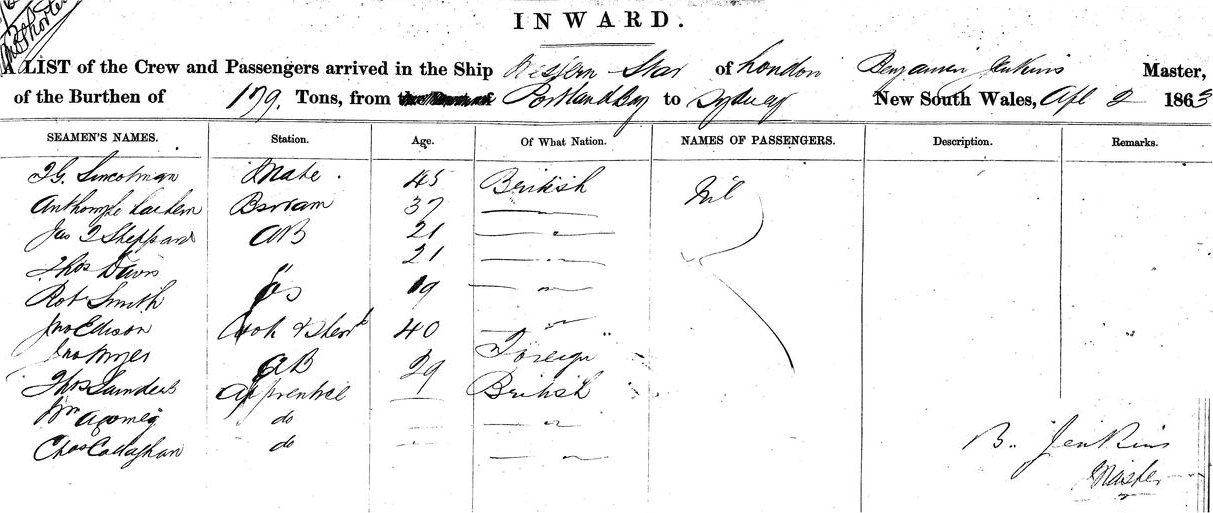 INWARD.
A LIST of the Crew and Passengers arrived in the Ship Western Star of London Benjamin Jenkins Master,
of the Burthen of 179 Tons, from Portland Bay to Sydney New South Wales, Apl 2 1863
SEAMEN'S NAMES. Station. Age. Of What Nation. NAMES OF PASSENGERS. Description. Remarks.
Mate. 45 British Nil
37
Jas Sheppard AB 21
Thos Davis " 21
Robt Smith 19
Jno Edison Cook & Stewd 40
AB 29 Foreign
Thos Saunders Apprentice British
Wm do
Chas Callaghan do
B. Jenkins
Master